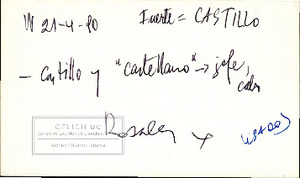 VI 21-4-80 Fuerte = CASTILLO
— Castillo y "castellano" → jefe,
Rosales x (USADO)
CELICH UC